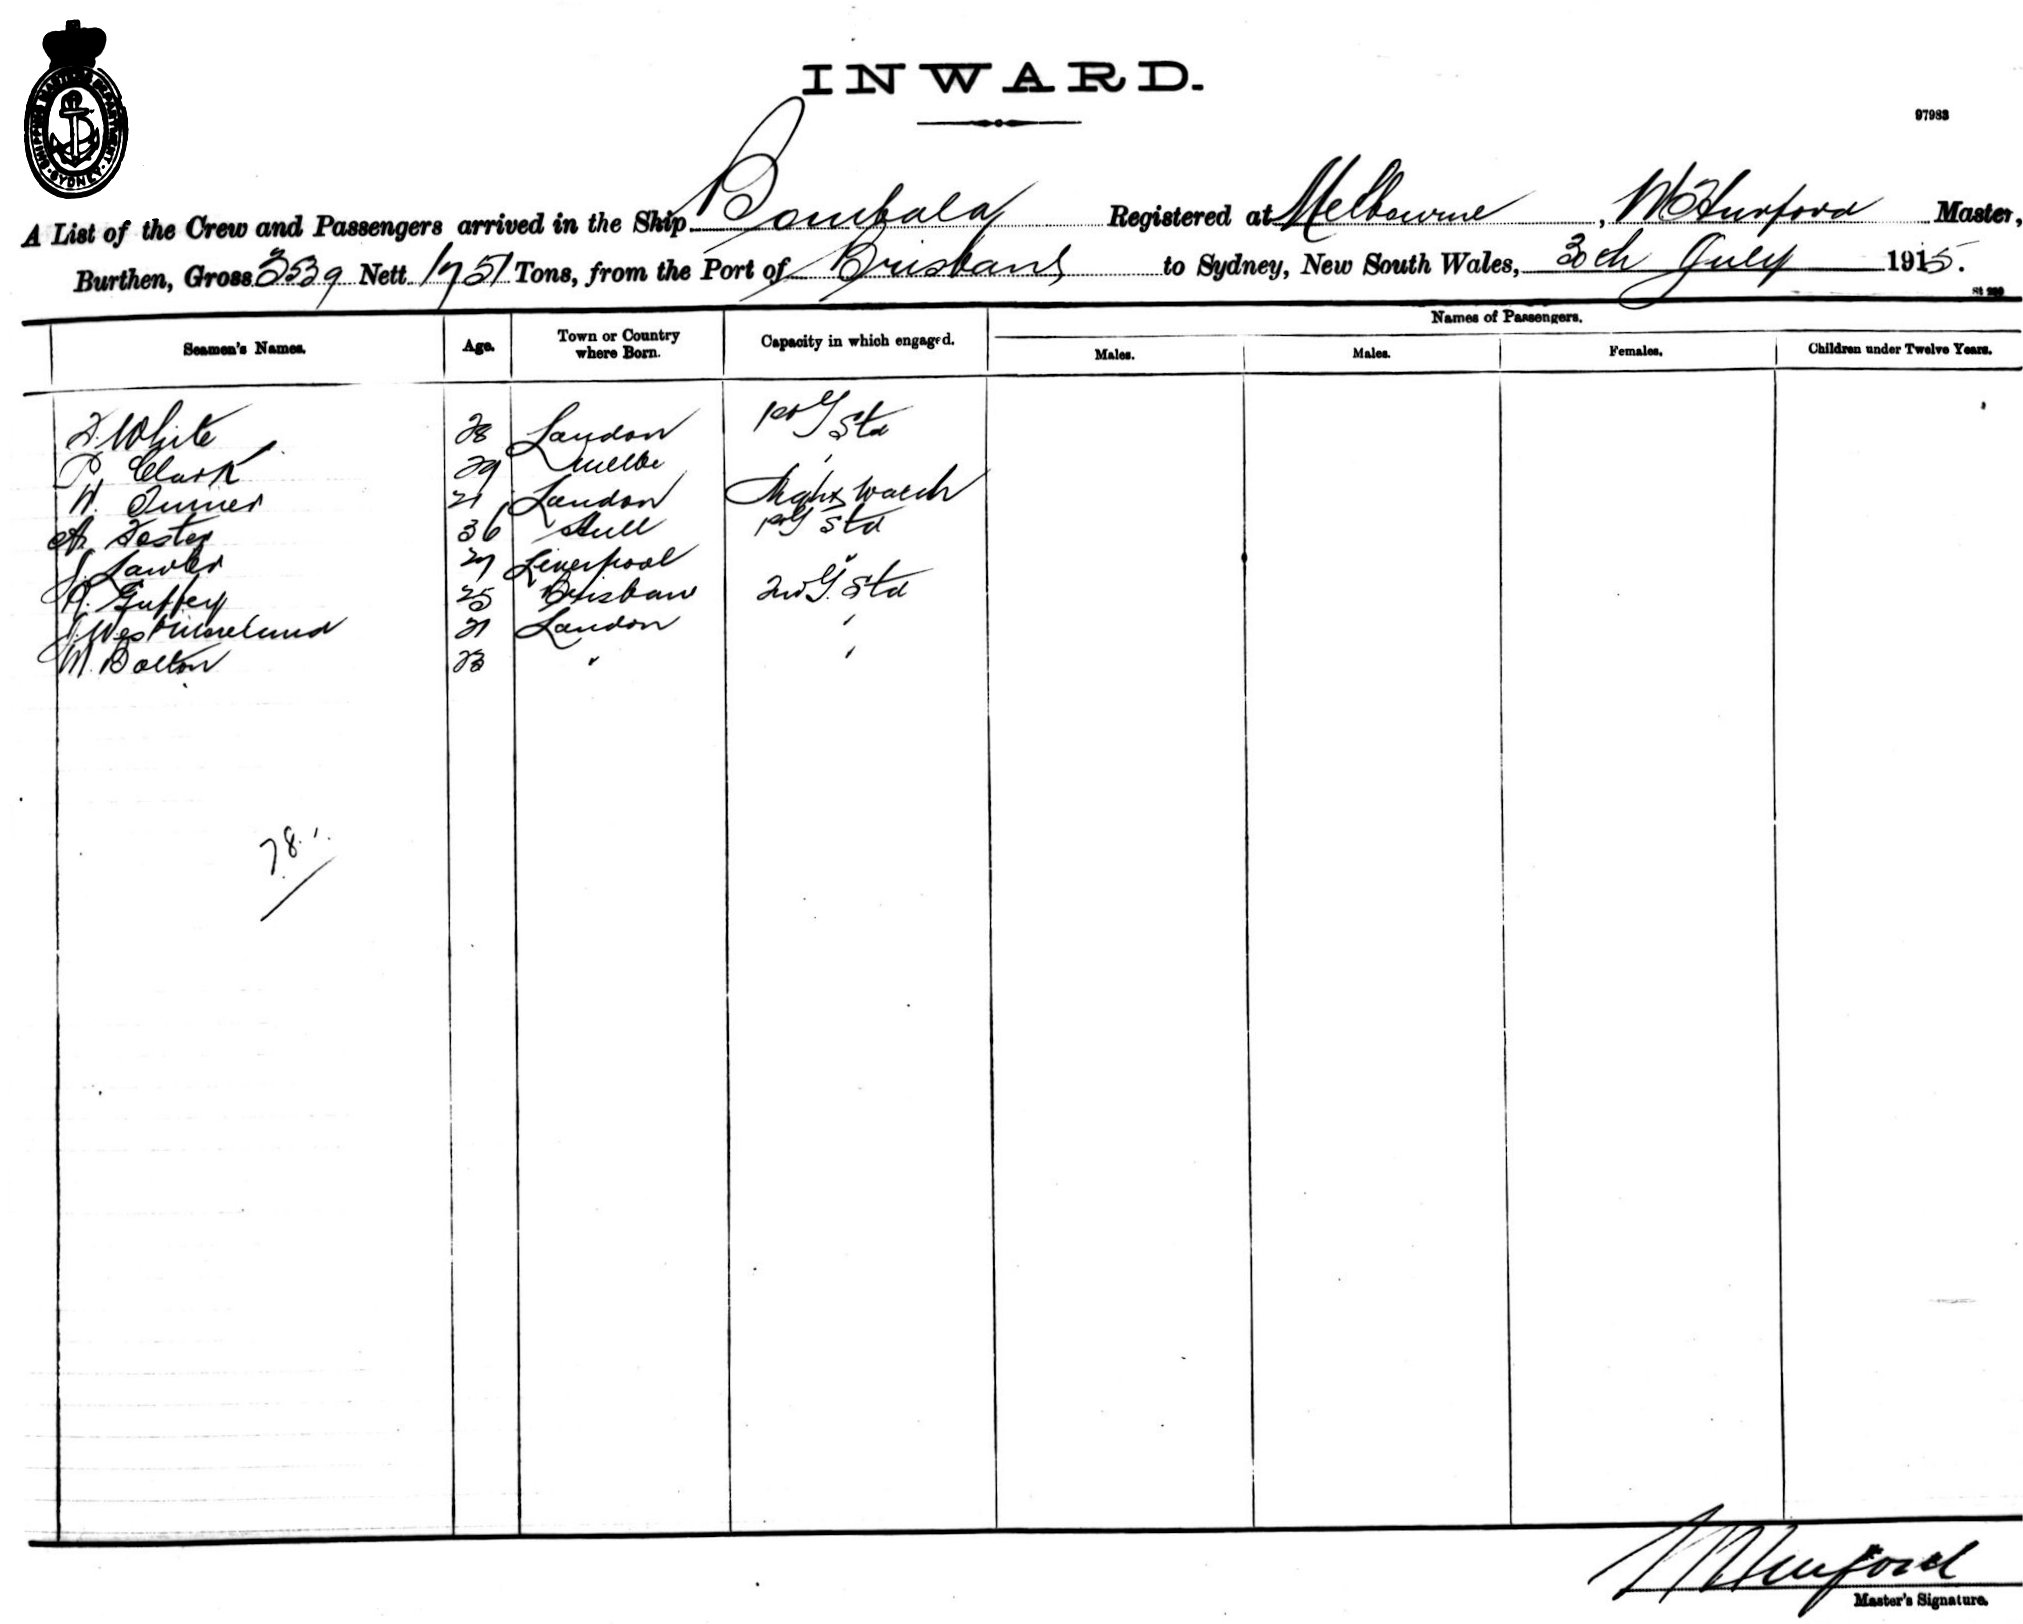 SHIPPING MASTER'S DEPARTMENT. SYDNEY.
INWARD.
97983
A List of the Crew and Passengers arrived in the Ship Bombala Registered at Melbourne, Hurford Master,
Burthen, Gross 3539 Nett 1751 Tons, from the Port of Brisbane to Sydney, New South Wales, 30th July 1915.
St 220
Names of Passengers.
Seamen's Names. Age. Town or Country where Born. Capacity in which engaged. Males. Males. Females. Children under Twelve Years.
F. White 28 London Std
P. Clark 29 Melbe "
W. Turner 21 London Night Watch
A. Foster 36 Hull Std
J. Lawler 27 Liverpool "
R. Guffey 25 Brisbane 2nd G. Std
J. Westmoreland 21 London "
M. Bolton 23 " "
78
Hurford
Master's Signature.